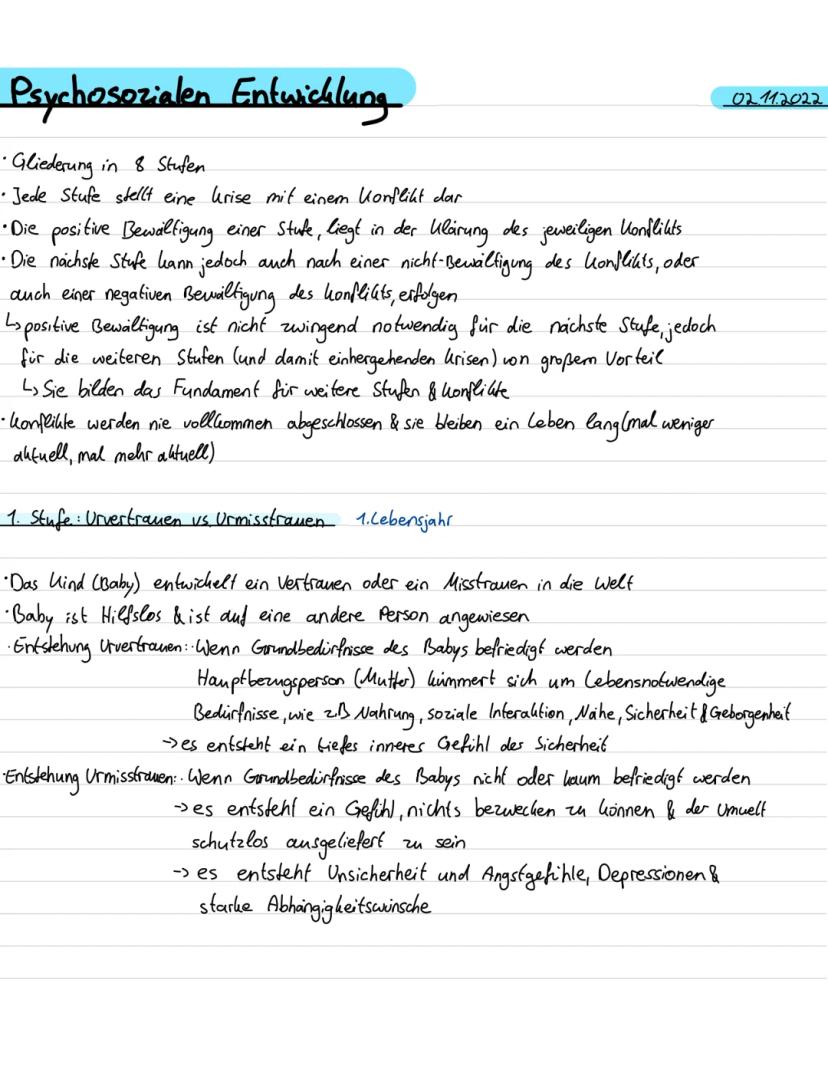 Psychosozialen Entwicklung
02.11.2022
· Gliederung in 8 Stufen
· Jede Stufe stellt eine Krise mit einem Konflikt dar
· Die positive Bewältigung einer Stufe, liegt in der Klärung des jeweiligen Konflikts
· Die nächste Stufe kann jedoch auch nach einer nicht-Bewältigung des Konflikts, oder
auch einer negativen Bewältigung des Konflikts, erfolgen
↳ positive Bewältigung ist nicht zwingend notwendig für die nächste Stufe, jedoch
für die weiteren Stufen (und damit einhergehenden Krisen) von großem Vorteil
↳ Sie bilden das Fundament für weitere Stufen & Konflikte
· Konflikte werden nie vollkommen abgeschlossen & sie bleiben ein Leben lang (mal weniger
aktuell, mal mehr aktuell)
1. Stufe: Urvertrauen vs. Urmisstrauen 1.Lebensjahr
· Das Kind (Baby) entwickelt ein Vertrauen oder ein Misstrauen in die Welt
· Baby ist Hilfslos & ist auf eine andere Person angewiesen
· Entstehung Urvertrauen: · Wenn Grundbedürfnisse des Babys befriedigt werden
Hauptbezugsperson (Mutter) kümmert sich um Lebensnotwendige
Bedürfnisse, wie z.B Nahrung, soziale Interaktion, Nähe, Sicherheit & Geborgenheit
-> es entsteht ein tiefes inneres Gefühl der Sicherheit
· Entstehung Urmisstrauen: · Wenn Grundbedürfnisse des Babys nicht oder kaum befriedigt werden
-> es entsteht ein Gefühl, nichts bezwecken zu können & der Umwelt
schutzlos ausgeliefert zu sein
-> es entsteht Unsicherheit und Angstgefühle, Depressionen &
starke Abhängigkeitswünsche